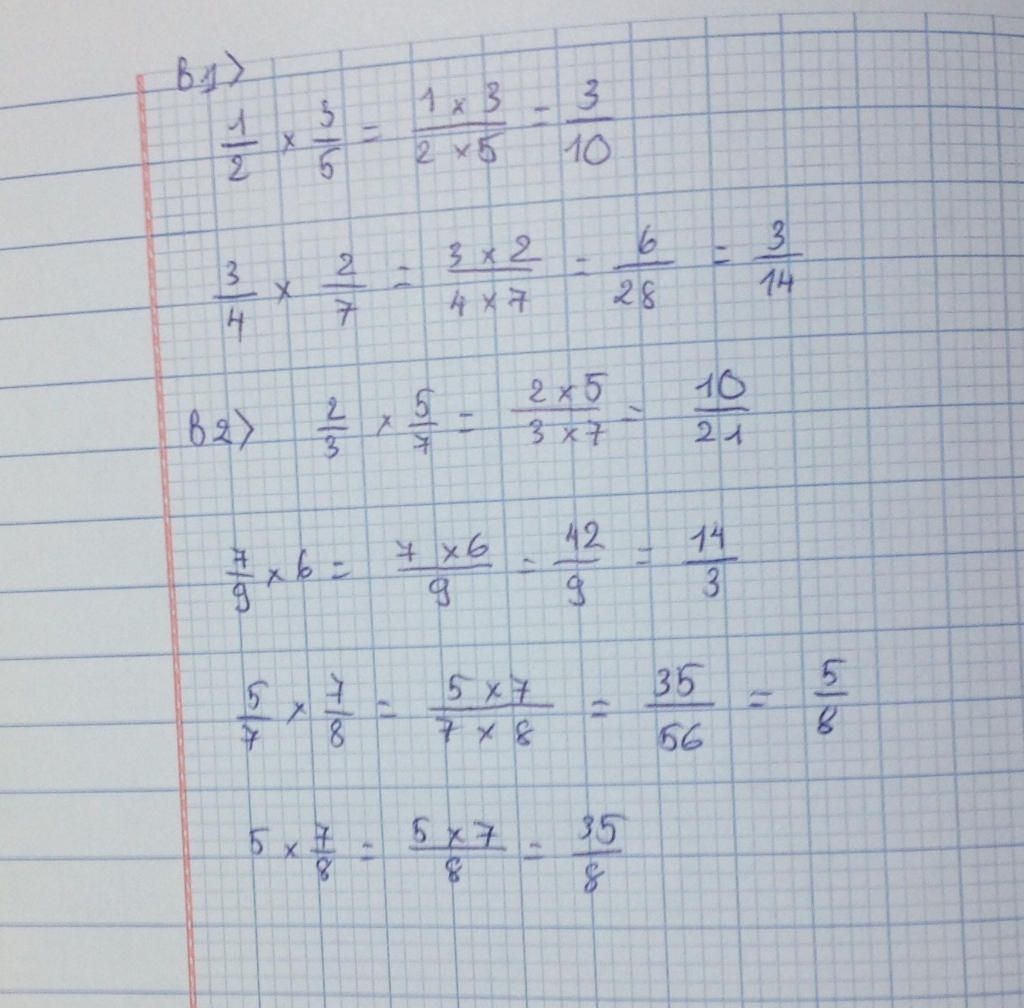 B1>
1/2 × 3/5 = (1 × 3)/(2 × 5) = 3/10
3/4 × 2/7 = (3 × 2)/(4 × 7) = 6/28 = 3/14
B2> 2/3 × 5/7 = (2 × 5)/(3 × 7) = 10/21
7/9 × 6 = (7 × 6)/9 = 42/9 = 14/3
5/7 × 7/8 = (5 × 7)/(7 × 8) = 35/56 = 5/8
5 × 7/8 = (5 × 7)/8 = 35/8